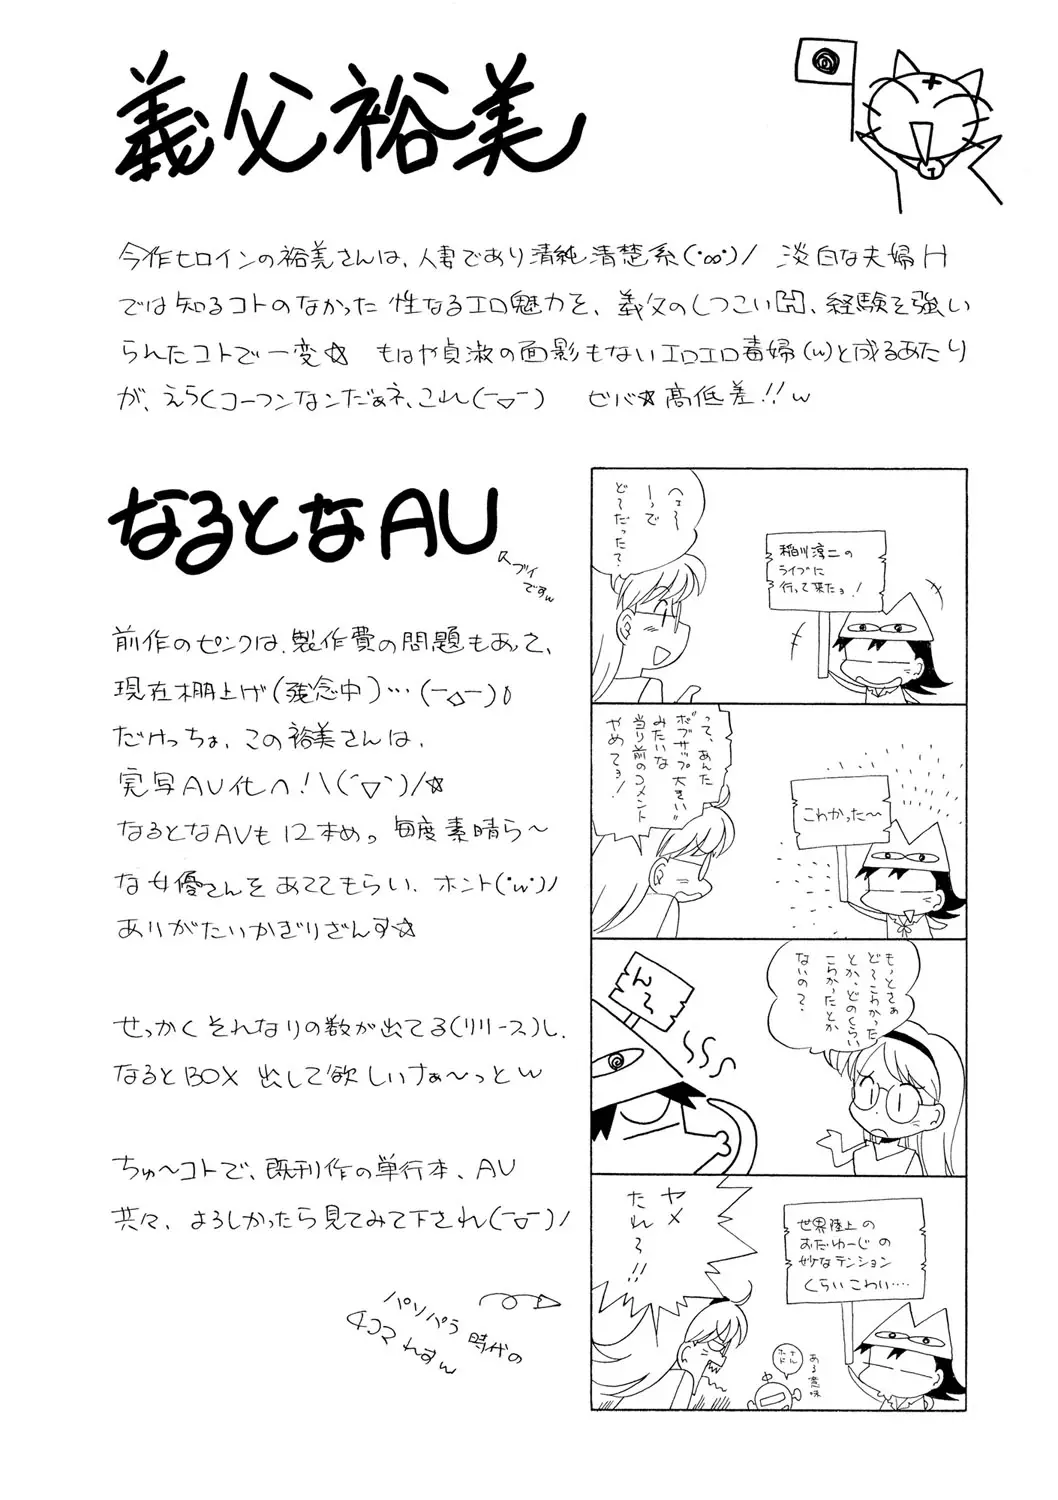 義父裕美
今作ヒロインの裕美さんは、人妻であり清純清楚系(・∞・)/ 淡白な夫婦H
では知るコトのなかった 性なるエロ魅力を、義父のしつこい責、経験を強い
られたコトで一変☆ もはや貞淑の面影もないエロエロ毒婦(w)と成るあたり
が、えらくコーフンなンだぁネ、これ(ー▽ー) ビバ☆高低差!!w
なるとなAV
スブイ
ですw
前作のピンクは、製作費の問題もあって、
現在棚上げ(残念中)…(ー△ー)
だけっちょ、この裕美さんは、
実写AV化へ!\(´▽`)/☆
なるとなAVも12本め。毎度素晴ら〜
な女優さんをあててもらい、ホント(・w・)ノ
ありがたいかぎりざんす☆
せっかくそれなりの数が出てる(リリース)し、
なるとBOX 出して欲しいけぁ〜っとw
ちゅ〜コトで、既刊作の単行本、AV
共々、よろしかったら見てみて下され(ー▽ー)ノ
パソパラ時代の
4コマれすw
稲川淳二の
ライブに
行って来たョ!
へぇ〜
ーって
ど〜だった?
こわかった〜
って、あんた
ボブサップ大きい"
みたいな
当り前のコメント
やめてョ!
も〜とさぁ
ど〜こわかった
とか、どのくらい
こわかったとか
ないの?
ん〜
世界陸上の
おだゆーじの
妙なテンション
くらいこわい…
ヤメ
たれ〜!!
ある意味
ナル
ホド